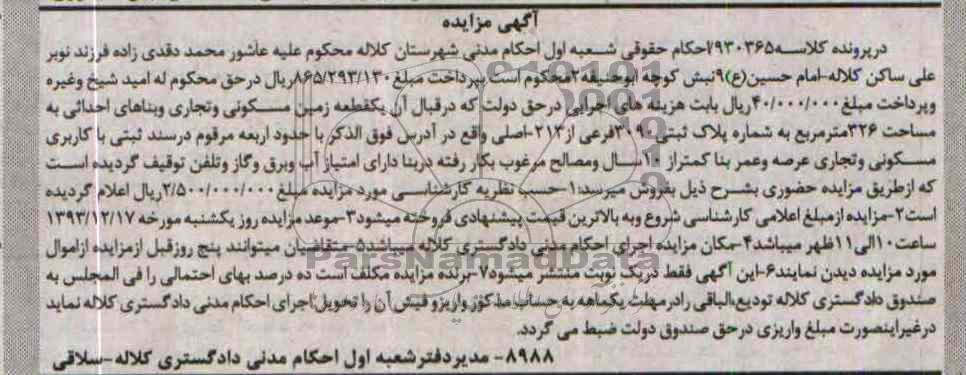 آگهی مزایده
درپرونده کلاسه۹۳۰۳۶۵/احکام حقوقی شعبه اول احکام مدنی شهرستان کلاله محکوم علیه عاشور محمد دقدی زاده فرزند نوبر
علی ساکن کلاله-امام حسین(ع)۹نبش کوچه ابوحنیفه۲محکوم است بپرداخت مبلغ۸۶۵/۲۹۳/۱۳۰ریال درحق محکوم له امید شیخ وغیره
وپرداخت مبلغ۴۰/۰۰۰/۰۰۰ریال بابت هزینه های اجرایی درحق دولت که درقبال آن یکقطعه زمین مسکونی وتجاری وبناهای احداثی به
مساحت ۳۲۶مترمربع به شماره پلاک ثبتی۳۰۹۰فرعی از۲۱۳-اصلی واقع در آدرس فوق الذکر با حدود اربعه مرقوم درسند ثبتی با کاربری
مسکونی وتجاری عرصه وعمر بنا کمتراز ۱۰سال ومصالح مرغوب بکار رفته دربنا دارای امتیاز آب وبرق وگاز وتلفن توقیف گردیده است
که ازطریق مزایده حضوری بشرح ذیل بفروش میرسد:۱-حسب نظریه کارشناسی مورد مزایده مبلغ۲/۵۰۰/۰۰۰/۰۰۰ریال اعلام گردیده
است۲-مزایده ازمبلغ اعلامی کارشناسی شروع وبه بالاترین قیمت پیشنهادی فروخته میشود۳-موعد مزایده روز یکشنبه مورخه ۱۳۹۳/۱۲/۱۷
ساعت۱۰الی۱۱ظهر میباشد۴-مکان مزایده اجرای احکام مدنی دادگستری کلاله میباشد۵-متقاضیان میتوانند پنج روزقبل ازمزایده ازاموال
مورد مزایده دیدن نمایند۶-این آگهی فقط دریک نوبت منتشر میشود۷-برنده مزایده مکلف است ده درصد بهای احتمالی را فی المجلس به
صندوق دادگستری کلاله تودیع،الباقی رادرمهلت یکماهه به حساب مذکور واریزو فیش آن را تحویل اجرای احکام مدنی دادگستری کلاله نماید
درغیراینصورت مبلغ واریزی درحق صندوق دولت ضبط می گردد.
۸۹۸۸- مدیردفترشعبه اول احکام مدنی دادگستری کلاله-سلاقی
ParsNamadData